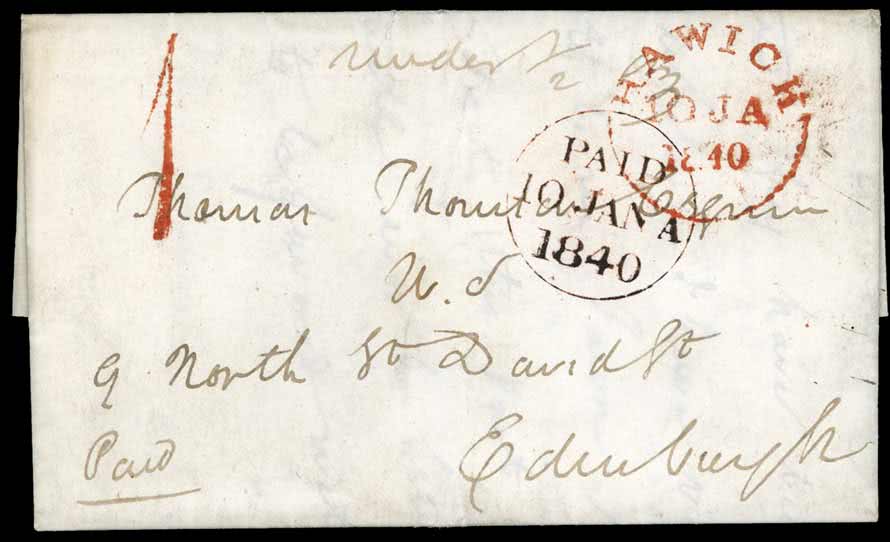 1
under ½ oz
HAWICH
10 JA
1840
PAID
10 JAN A
1840
Thomas
W.S
9 North St David St
Edinburgh
Paid